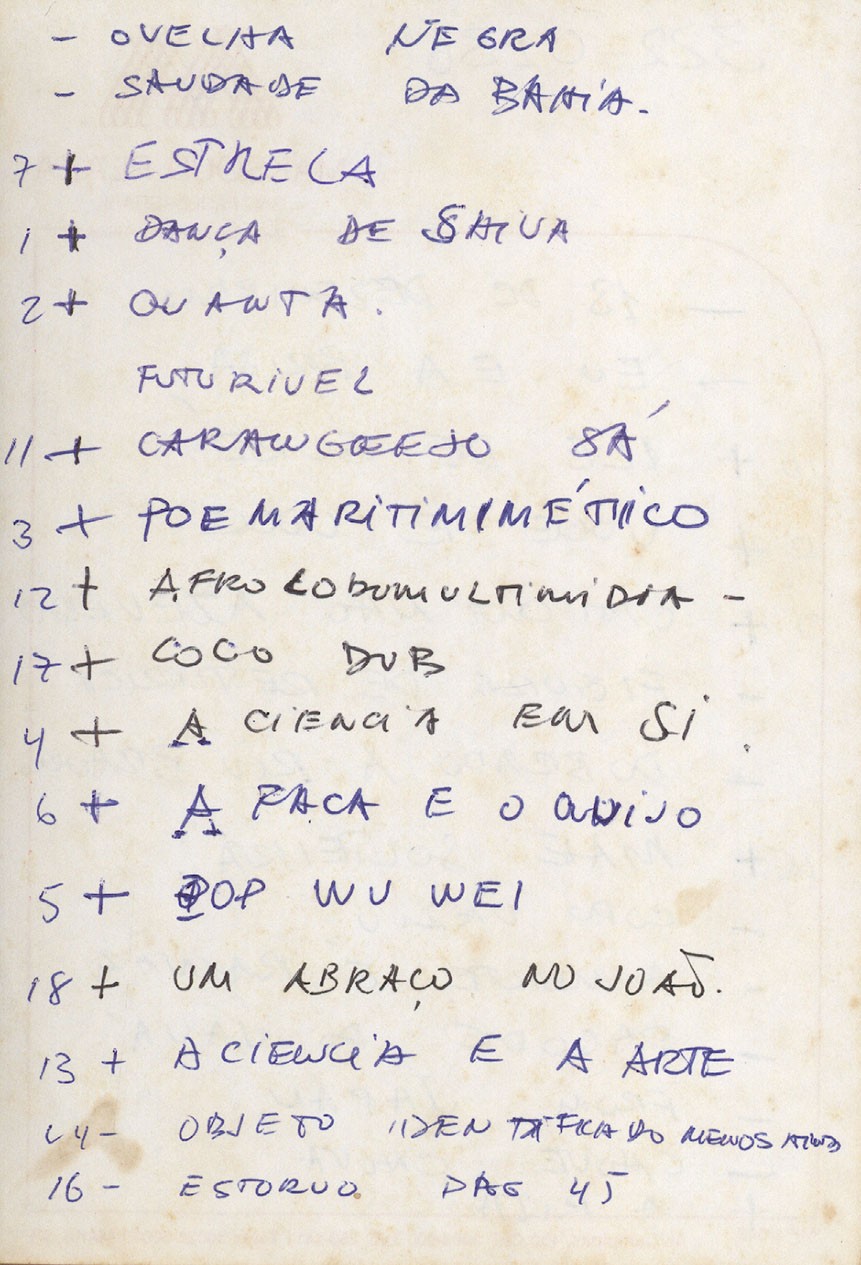 - OVELHA NEGRA
- SAUDADE DA BAHIA.
7 + ESTRELA
1 + DANÇA DE SHIVA
2 + QUANTA.
FUTURIVEL
11 + CARANGUEJO SÁ
3 + POEMARITIMIMÉTICO
12 + AFROLODUMULTIMIDIA -
17 + COCO DUB
4 + A CIENCIA EM SI.
6 + A FACA E O QUEIJO
5 + POP WU WEI
18 + UM ABRAÇO NO JOÃO.
13 + A CIENCIA E A ARTE
14 - OBJETO IDENTIFICADO MENOS AINDA
16 - ESTORVO PAG 45